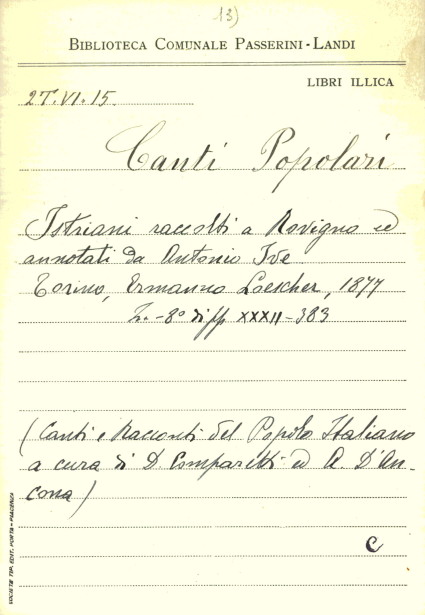 13)
BIBLIOTECA COMUNALE PASSERINI-LANDI
LIBRI ILLICA
2T.VI.15.
Canti Popolari
Istriani raccolti a Rovigno ed
annotati da Antonio Ive
Torino, Ermanno Loescher, 1877
In-8° di pp XXXII-383
(Canti e Racconti del Popolo Italiano
a cura di D. Comparetti ed A. D'An-
cona)
C
SOCIETÀ TIP. EDIT. PORTA - PIACENZA